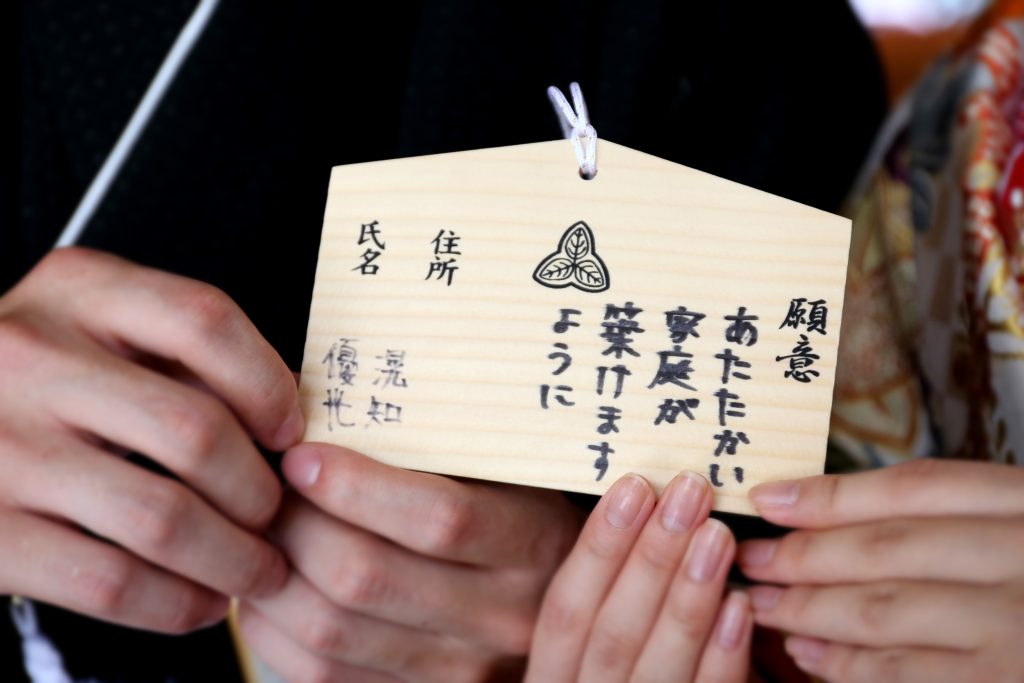 願意
あたたかい
家庭が
築けます
ように
住所
氏名
滉知
優